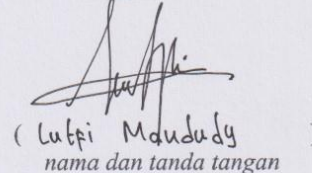 ( Lutfi Maududy )
nama dan tanda tangan